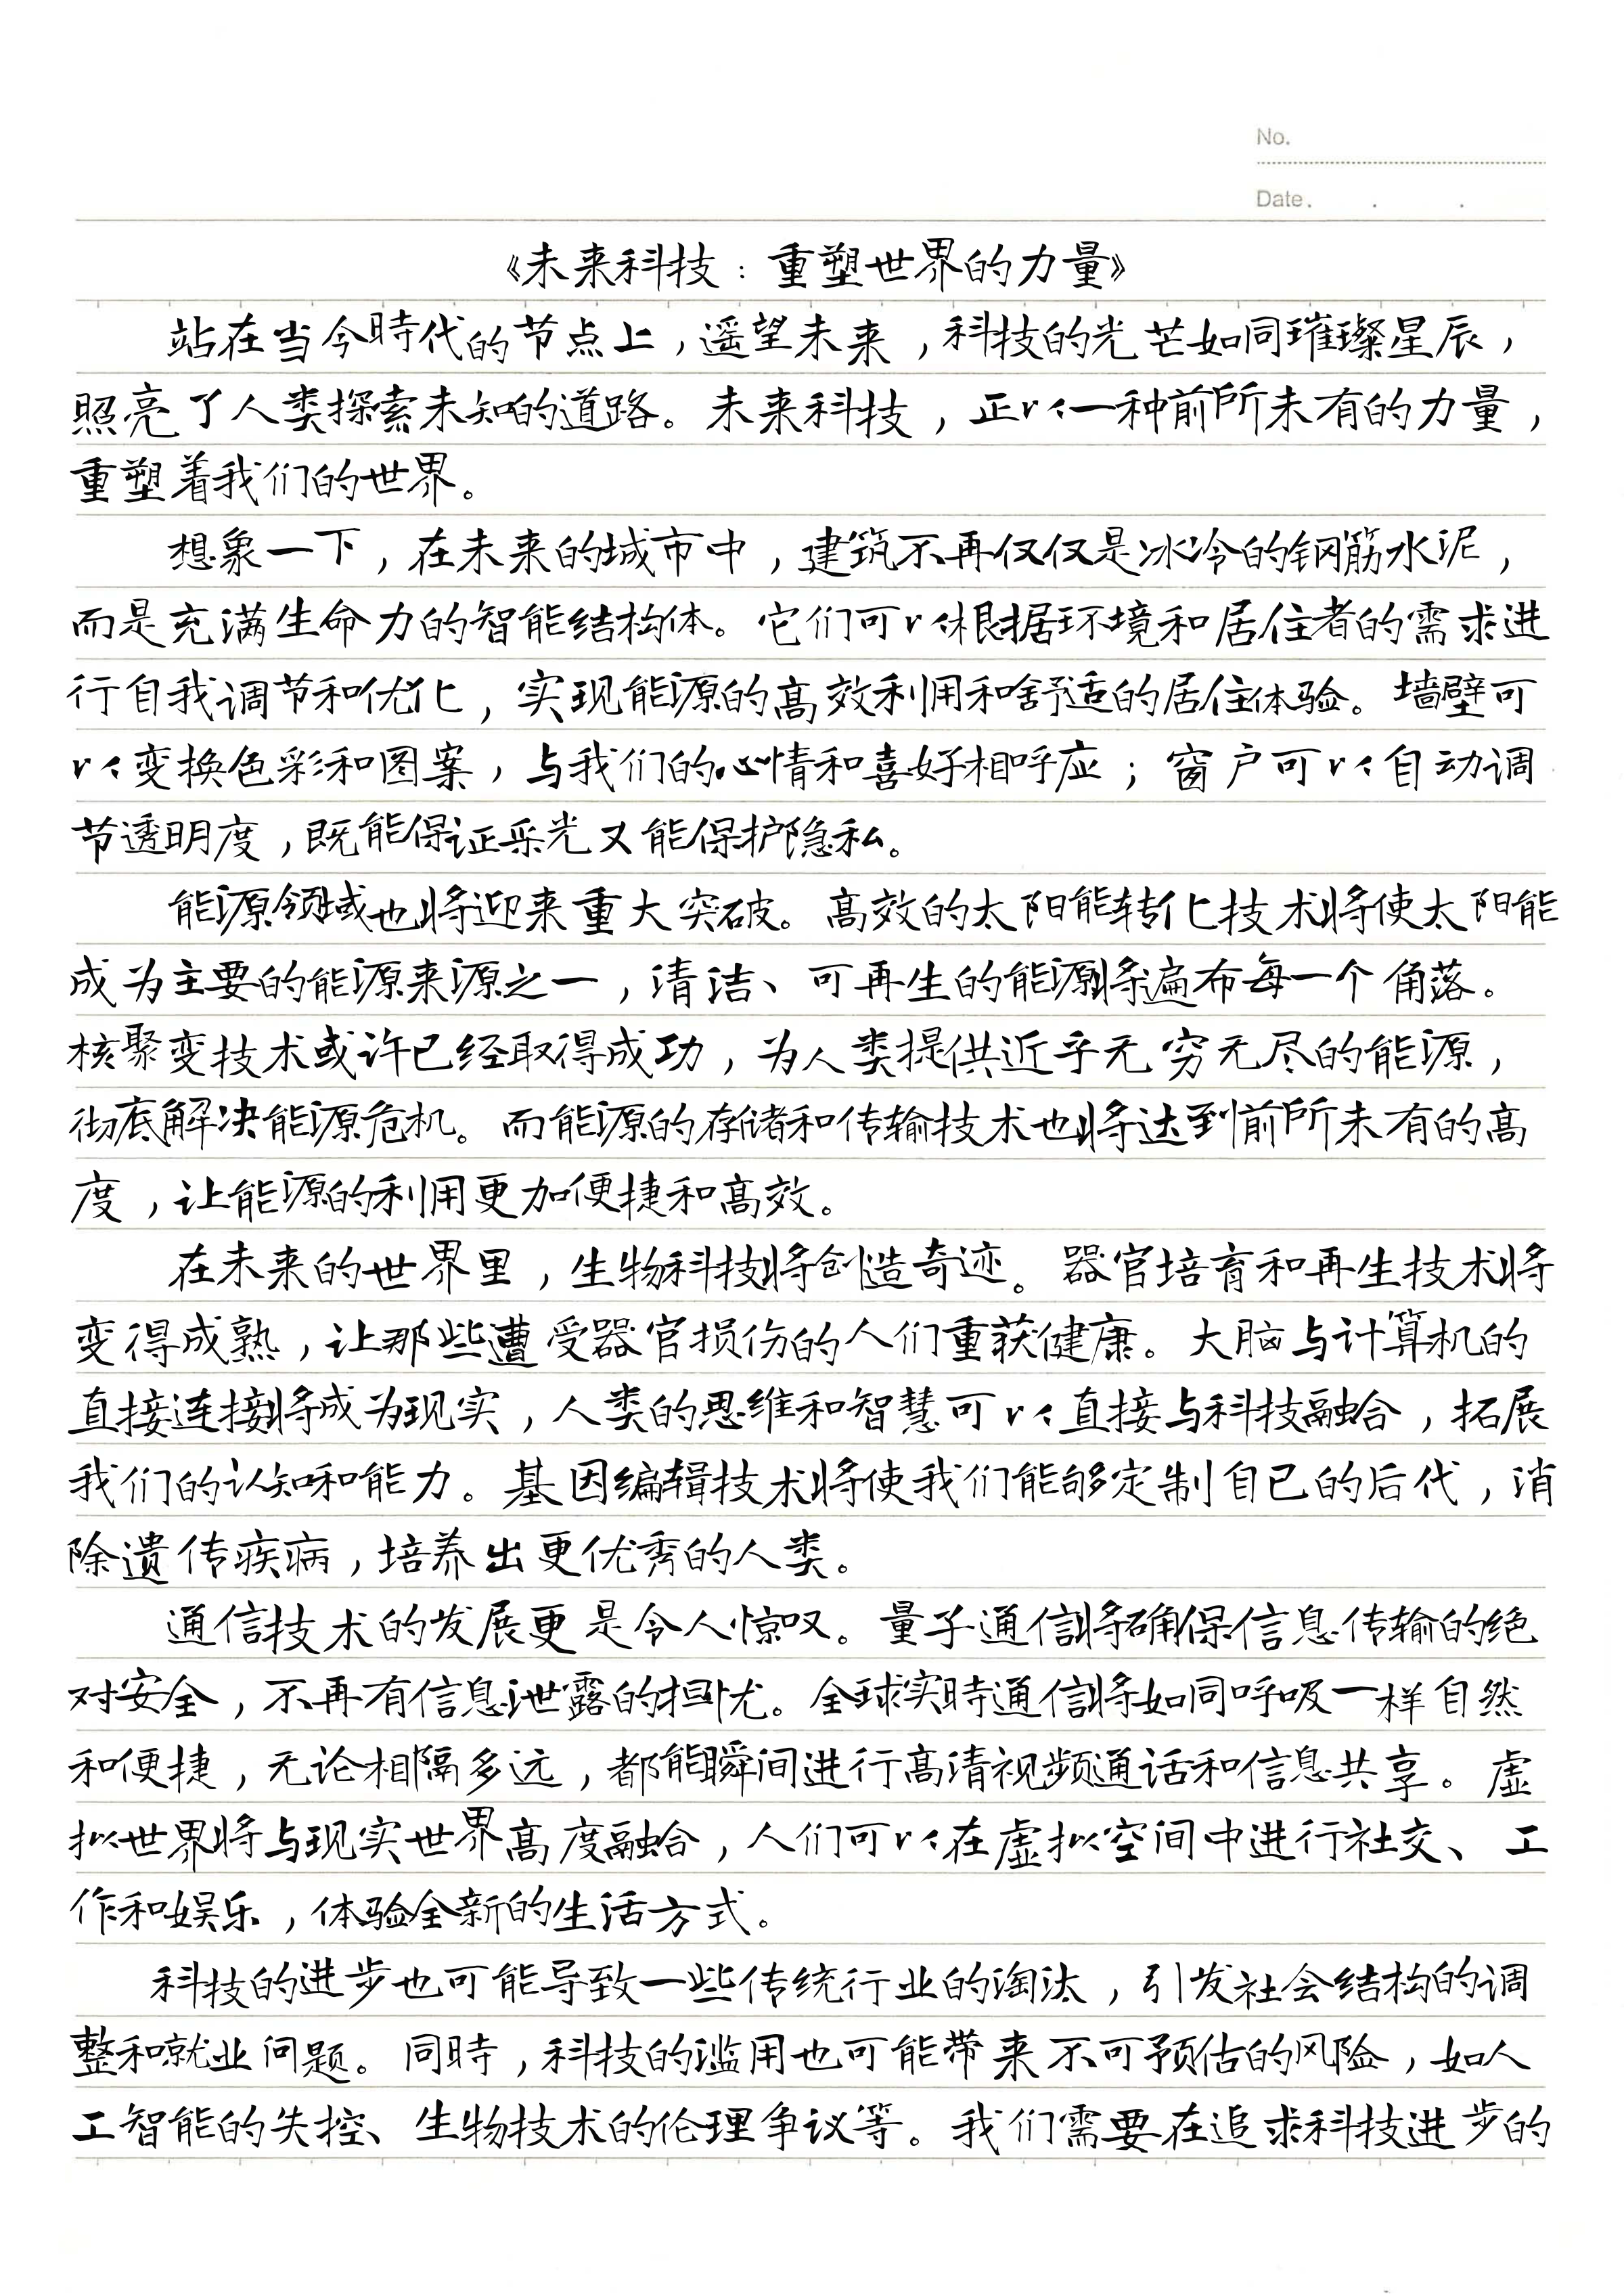 No.
Date.
《未来科技：重塑世界的力量》
站在当今時代的节点上，遥望未来，科技的光芒如同璀璨星辰，
照亮了人类探索未知的道路。未来科技，正以一种前所未有的力量，
重塑着我们的世界。
想象一下，在未来的城市中，建筑不再仅仅是冰冷的钢筋水泥，
而是充满生命力的智能结构体。它们可以根据环境和居住者的需求进
行自我调节和优化，实现能源的高效利用和舒适的居住体验。墙壁可
以变换色彩和图案，与我们的心情和喜好相呼应；窗户可以自动调
节透明度，既能保证采光又能保护隐私。
能源领域也将迎来重大突破。高效的太阳能转化技术将使太阳能
成为主要的能源来源之一，清洁、可再生的能源将遍布每一个角落。
核聚变技术或许已经取得成功，为人类提供近乎无穷无尽的能源，
彻底解决能源危机。而能源的存储和传输技术也将达到前所未有的高
度，让能源的利用更加便捷和高效。
在未来的世界里，生物科技将创造奇迹。器官培育和再生技术将
变得成熟，让那些遭受器官损伤的人们重获健康。大脑与计算机的
直接连接将成为现实，人类的思维和智慧可以直接与科技融合，拓展
我们的认知和能力。基因编辑技术将使我们能够定制自己的后代，消
除遗传疾病，培养出更优秀的人类。
通信技术的发展更是令人惊叹。量子通信将确保信息传输的绝
对安全，不再有信息泄露的担忧。全球实時通信将如同呼吸一样自然
和便捷，无论相隔多远，都能瞬间进行高清视频通话和信息共享。虚
拟世界将与现实世界高度融合，人们可以在虚拟空间中进行社交、工
作和娱乐，体验全新的生活方式。
科技的进步也可能导致一些传统行业的淘汰，引发社会结构的调
整和就业问题。同時，科技的滥用也可能带来不可预估的风险，如人
工智能的失控、生物技术的伦理争议等。我们需要在追求科技进步的